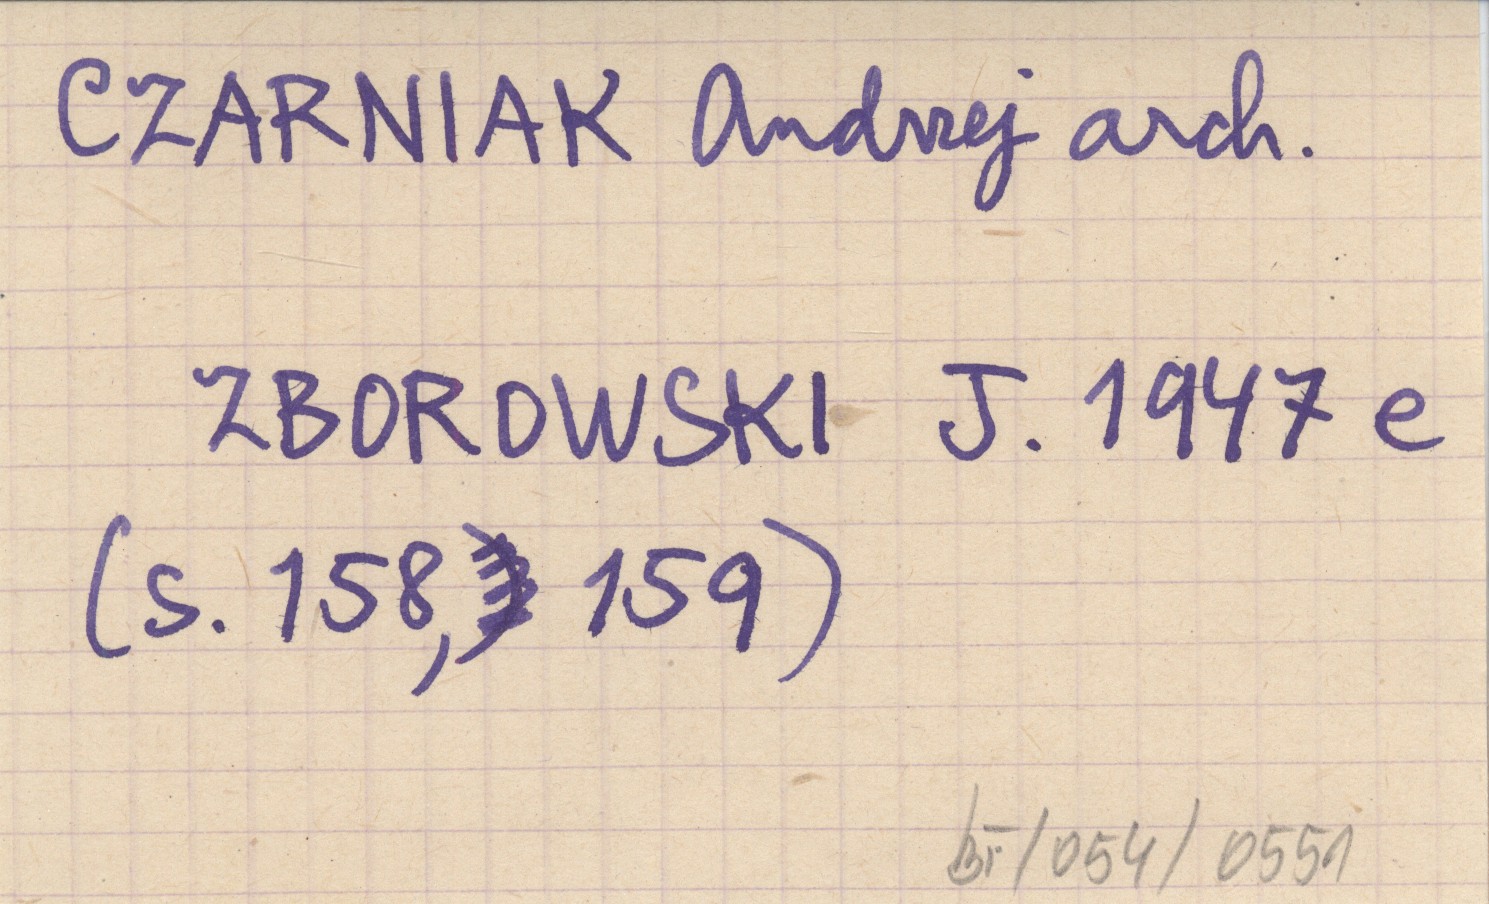 CZARNIAK Andrzej arch.
ZBOROWSKI J. 1947 e
(s. 158, 159)
BI/054/0551